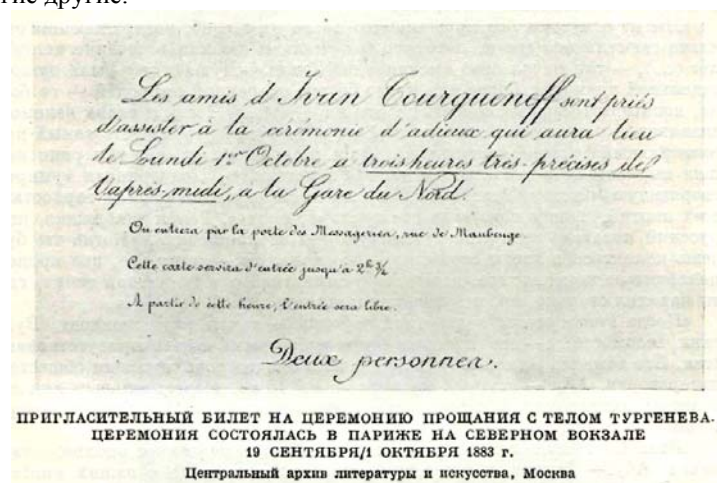 гие другие.
Les amis d'Ivan Tourguéneff sont priés
d'assister à la cérémonie d'adieux qui aura lieu
le Lundi 1er Octobre à trois heures très-précises de
l'après-midi, à la Gare du Nord.
On entrera par la porte des Messageries, rue de Maubeuge.
Cette carte servira d'entrée jusqu'à 2h 3/4.
A partir de cette heure, l'entrée sera libre.
Deux personnes.
ПРИГЛАСИТЕЛЬНЫЙ БИЛЕТ НА ЦЕРЕМОНИЮ ПРОЩАНИЯ С ТЕЛОМ ТУРГЕНЕВА.
ЦЕРЕМОНИЯ СОСТОЯЛАСЬ В ПАРИЖЕ НА СЕВЕРНОМ ВОКЗАЛЕ
19 СЕНТЯБРЯ/1 ОКТЯБРЯ 1883 г.
Центральный архив литературы и искусства, Москва